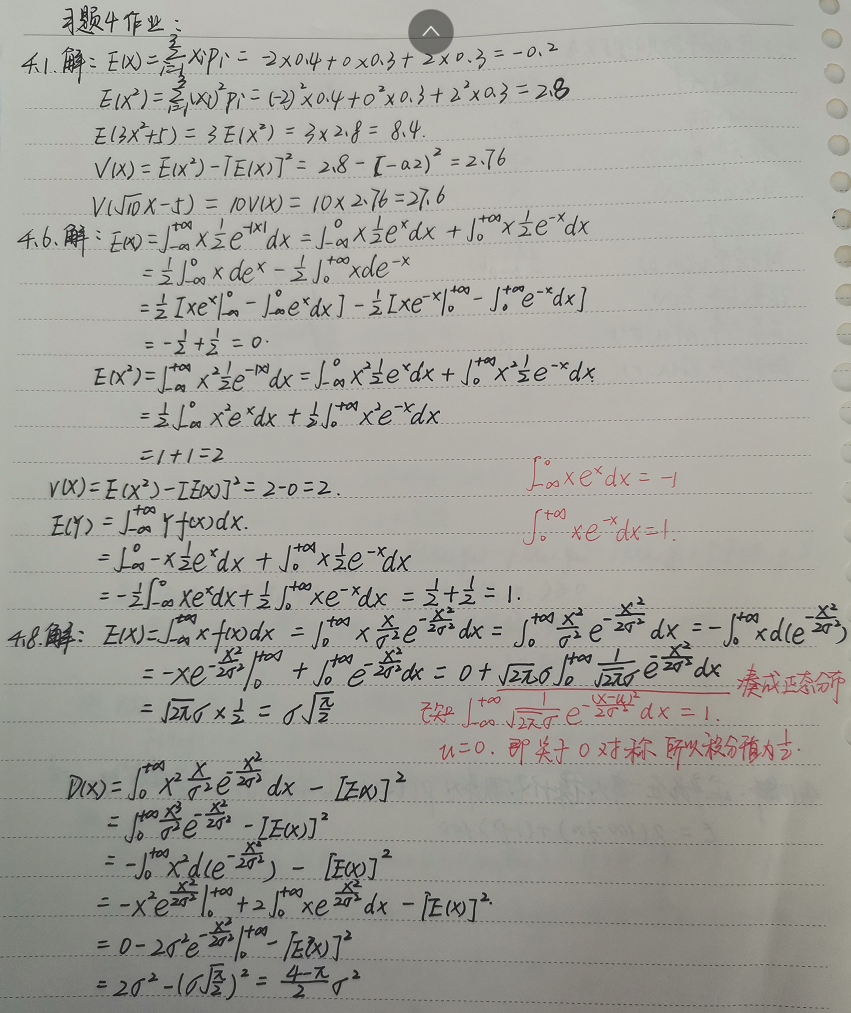 习题4作业:
4.1.解: E(X)=∑³ᵢ₌₁xᵢpᵢ = -2×0.4+0×0.3+2×0.3=-0.2
E(X²)=∑³ᵢ₌₁(xᵢ)²pᵢ=(-2)²×0.4+0²×0.3+2²×0.3=2.8
E(3X²+5) = 3E(X²) = 3×2.8 = 8.4.
V(X) = E(X²)-[E(X)]² = 2.8-[-0.2)² = 2.76
V(√10X-5) = 10V(X) = 10×2.76=27.6
4.6.解: E(X)=∫₋∞⁺∞ x½e^(-|x|)dx = ∫₋∞⁰ x½eˣdx + ∫₀⁺∞ x½e⁻ˣdx
=½∫₋∞⁰ xdeˣ - ½∫₀⁺∞ xde⁻ˣ
=½[xeˣ|₋∞⁰ - ∫₋∞⁰eˣdx] - ½[xe⁻ˣ|₀⁺∞ - ∫₀⁺∞e⁻ˣdx]
= -½+½ = 0.
E(X²)=∫₋∞⁺∞ x²½e^(-|x|)dx = ∫₋∞⁰ x²½eˣdx + ∫₀⁺∞ x²½e⁻ˣdx.
=½∫₋∞⁰ x²eˣdx + ½∫₀⁺∞ x²e⁻ˣdx
=1+1=2
∫₋∞⁰ xeˣdx = -1
V(X)=E(X²)-[E(X)]²=2-0=2.
E(Y) = ∫₋∞⁺∞ Yf(x)dx.
∫₀⁺∞ xe⁻ˣdx=1.
=∫₋∞⁰ -x½eˣdx + ∫₀⁺∞ x½e⁻ˣdx
=-½∫₋∞⁰ xeˣdx+½∫₀⁺∞ xe⁻ˣdx = ½+½ = 1.
4.8.解: E(X)=∫₋∞⁺∞ xf(x)dx = ∫₀⁺∞ x x/σ² e^(-x²/2σ²)dx = ∫₀⁺∞ x²/σ² e^(-x²/2σ²)dx = -∫₀⁺∞ xd(e^(-x²/2σ²))
= -xe^(-x²/2σ²)|₀⁺∞ + ∫₀⁺∞ e^(-x²/2σ²)dx = 0+√2πσ∫₀⁺∞ 1/(√2πσ) e^(-x²/2σ²)dx 凑成正态分布
= √2πσ×½ = σ√(π/2)
已知 ∫₋∞⁺∞ 1/(√2πσ) e^(-(x-u)²/2σ²)dx = 1.
u=0. 即关于0对称 所以积分值为½.
D(X)=∫₀⁺∞ x² x/σ² e^(-x²/2σ²)dx - [E(X)]²
=∫₀⁺∞ x³/σ² e^(-x²/2σ²) - [E(X)]²
= -∫₀⁺∞ x²d(e^(-x²/2σ²)) - [E(X)]²
= -x²e^(x²/2σ²)|₀⁺∞ + 2∫₀⁺∞ xe^(x²/2σ²)dx - [E(X)]².
= 0-2σ²e^(-x²/2σ²)|₀⁺∞ - [E(X)]²
= 2σ²-(σ√(π/2))² = (4-π)/2 σ²